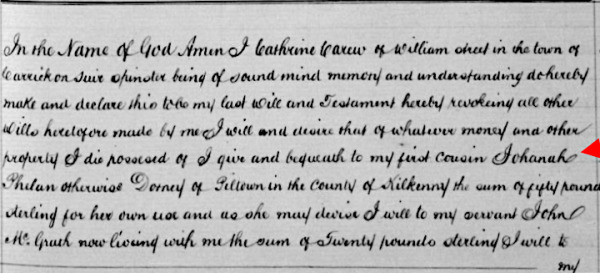 In the Name of God Amen I Cathrine Carew of William street in the town of
Carrick on Suir spinster being of sound mind memory and understanding do hereby
make and declare this to be my last Will and Testament hereby revokeing all other
Wills heretofore made by me I will and desire that of whatever money and other
property I die possesed of I give and bequeath to my first cousin Johanah
Phelan otherwise Dorney of Piltown in the County of Kilkenny the sum of fifty pound
sterling for her own use and as she may devise I will to my servant John
Mc Grath now living with me the sum of Twenty pounds sterling I will to
my